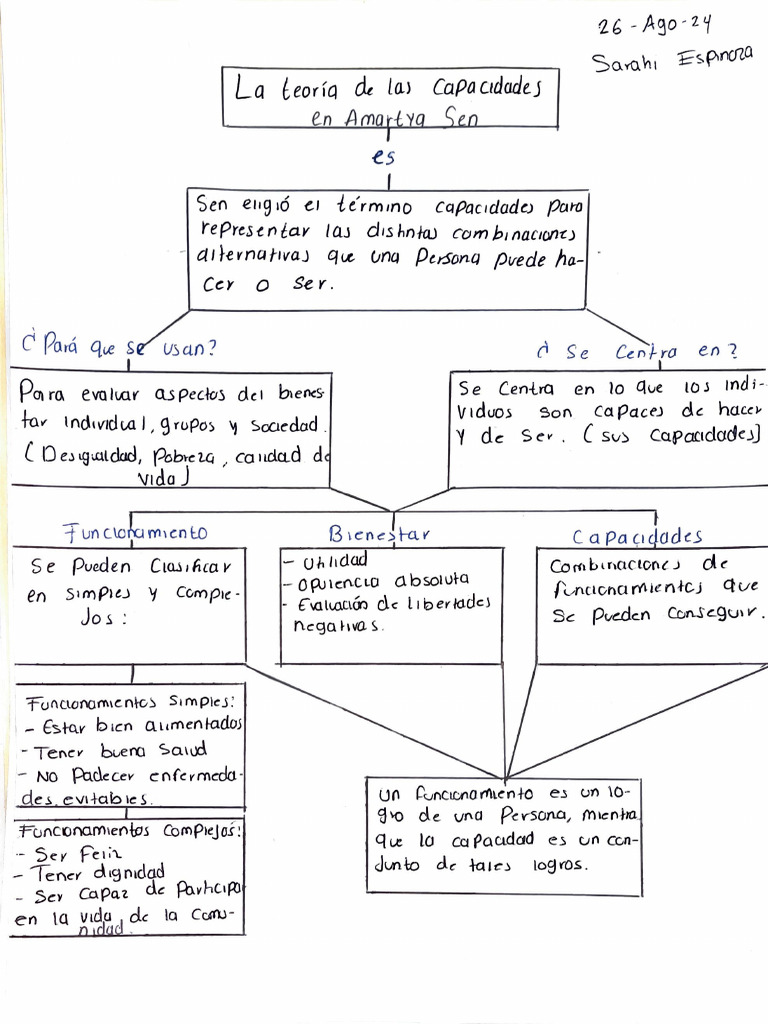 26-Ago-24
Sarahi Espinoza
La teoría de las Capacidades
en Amartya Sen
es
Sen eligió el término capacidades para
representar las distintas combinaciones
alternativas que una Persona puede ha-
cer o ser.
¿Pará que se usan?
Para evaluar aspectos del bienes
tar individual, grupos y sociedad.
(Desigualdad, Pobreza, calidad de
vida)
¿ Se Centra en?
Se Centra en lo que los indi-
viduos son capaces de hacer
y de ser. (sus capacidades)
Funcionamiento
Se Pueden Clasificar
en simples y comple-
jos:
Bienestar
- Utilidad
- Opulencia absoluta
- Evaluación de libertades
negativas.
Capacidades
Combinaciones de
funcionamientos que
Se Pueden Conseguir.
Funcionamientos Simples:
- Estar bien alimentados
- Tener buena Salud
- No Padecer enfermeda-
des evitables.
Funcionamientos Complejos:
- Ser Feliz
- Tener dignidad
- Ser Capaz de Participa
en la vida de la Comu-
nidad.
Un funcionamiento es un lo-
gro de una Persona, mientra
que la capacidad es un con-
junto de tales logros.